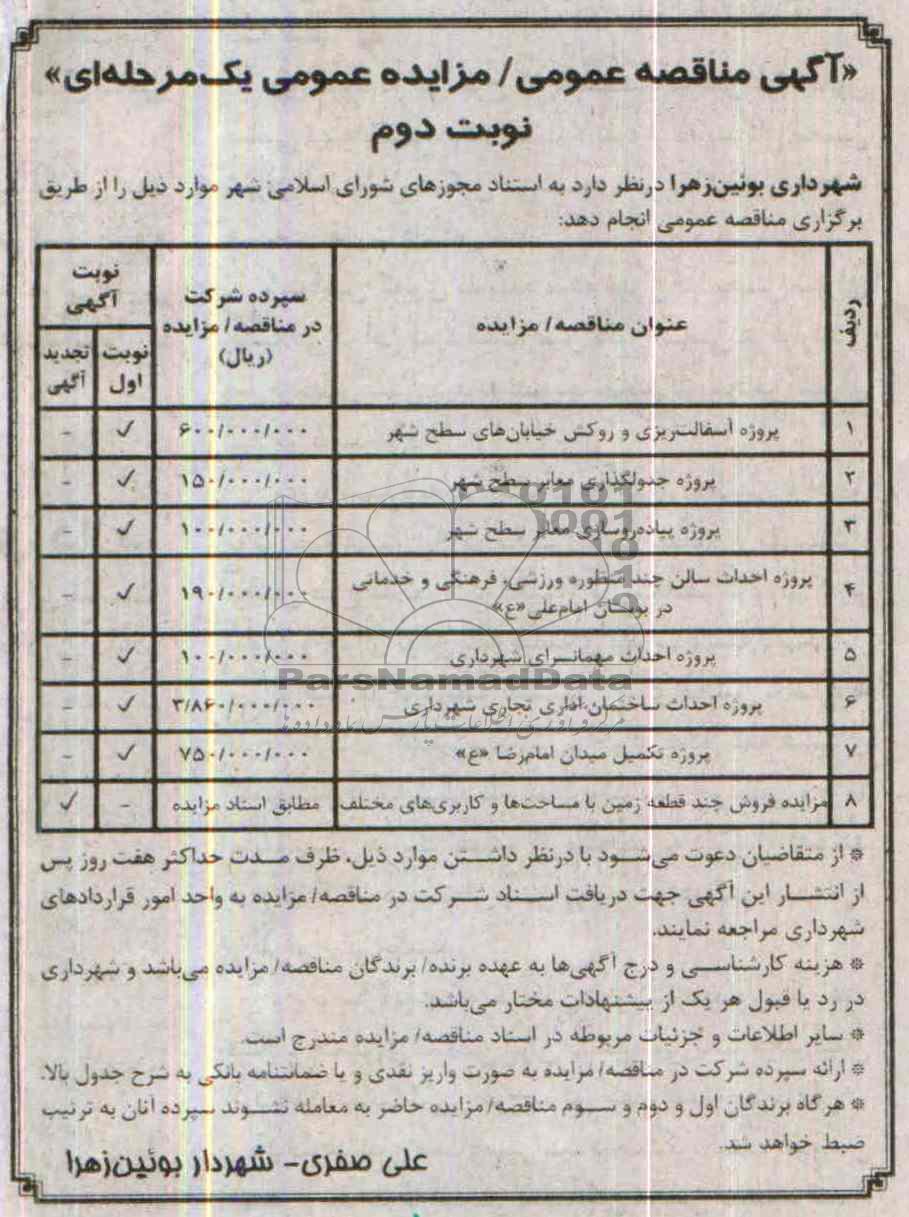 «آگهی مناقصه عمومی/ مزایده عمومی یک‌مرحله‌ای»
نوبت دوم
شهرداری بوئین‌زهرا درنظر دارد به استناد مجوزهای شورای اسلامی شهر موارد ذیل را از طریق
برگزاری مناقصه عمومی انجام دهد:
ردیف
عنوان مناقصه/ مزایده
سپرده شرکت
در مناقصه/ مزایده
(ریال)
نوبت
آگهی
نوبت اول
تجدید آگهی
۱ پروژه آسفالت‌ریزی و روکش خیابان‌های سطح شهر ۶۰۰/۰۰۰/۰۰۰ ✓ -
۲ پروژه جدولگذاری معابر سطح شهر ۱۵۰/۰۰۰/۰۰۰ ✓ -
۳ پروژه پیاده‌روسازی معابر سطح شهر ۱۰۰/۰۰۰/۰۰۰ ✓ -
۴ پروژه احداث سالن چند منظوره ورزشی، فرهنگی و خدماتی
در بوستان امام‌علی «ع» ۱۹۰/۰۰۰/۰۰۰ ✓ -
۵ پروژه احداث مهمانسرای شهرداری ۱۰۰/۰۰۰/۰۰۰ ✓ -
۶ پروژه احداث ساختمان اداری تجاری شهرداری ۳/۸۶۰/۰۰۰/۰۰۰ ✓ -
۷ پروژه تکمیل میدان امام‌رضا «ع» ۷۵۰/۰۰۰/۰۰۰ ✓ -
۸ مزایده فروش چند قطعه زمین با مساحت‌ها و کاربری‌های مختلف مطابق اسناد مزایده - ✓
ParsNamadData
* از متقاضیان دعوت می‌شود با درنظر داشتن موارد ذیل، ظرف مدت حداکثر هفت روز پس
از انتشار این آگهی جهت دریافت اسناد شرکت در مناقصه/ مزایده به واحد امور قراردادهای
شهرداری مراجعه نمایند.
* هزینه کارشناسی و درج آگهی‌ها به عهده برنده/ برندگان مناقصه/ مزایده می‌باشد و شهرداری
در رد یا قبول هر یک از پیشنهادات مختار می‌باشد.
* سایر اطلاعات و جزئیات مربوطه در اسناد مناقصه/ مزایده مندرج است.
* ارائه سپرده شرکت در مناقصه/ مزایده به صورت واریز نقدی و یا ضمانتنامه بانکی به شرح جدول بالا.
* هرگاه برندگان اول و دوم و سوم مناقصه/ مزایده حاضر به معامله نشوند سپرده آنان به ترتیب
ضبط خواهد شد.
علی صفری- شهردار بوئین‌زهرا